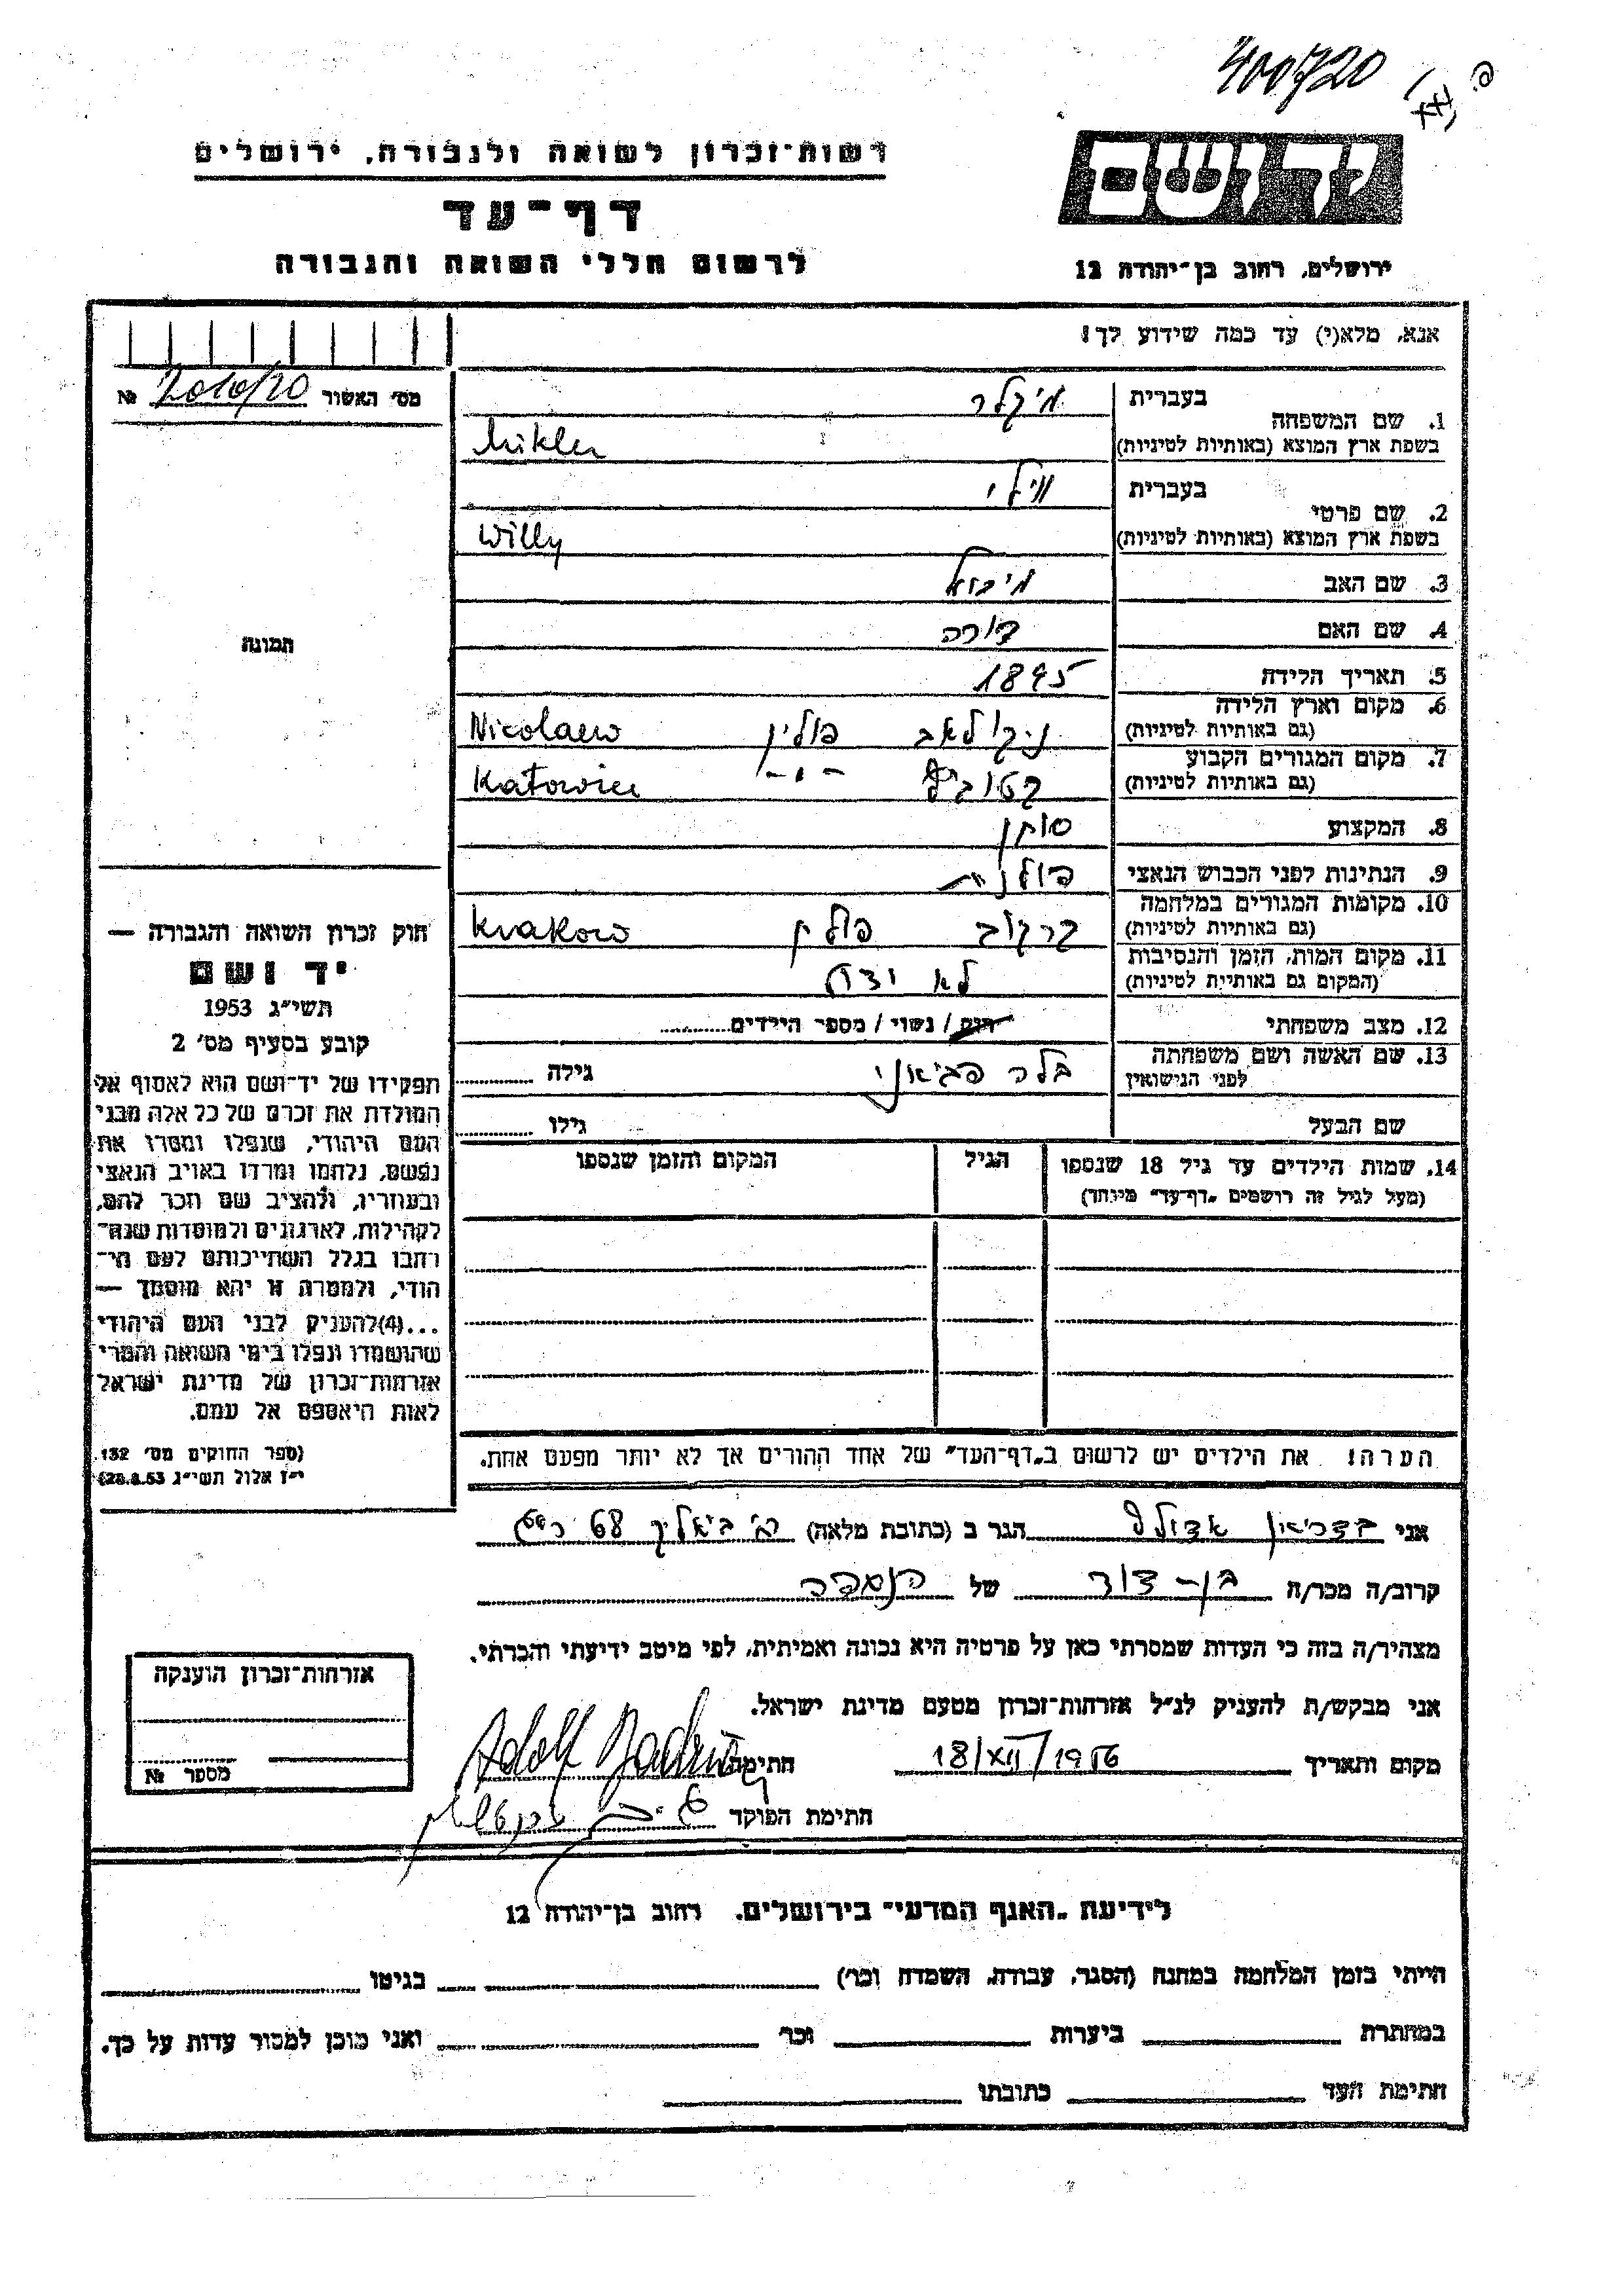 400720
רשות־זכרון לשואה ולגבורה, ירושלים
יד ושם
דף־עד
לרשום חללי השואה והגבורה
ירושלים, רחוב בן־יהודה 12
אנא, מלא(י) עד כמה שידוע לך!
מס׳ האשור
№
1. שם המשפחה
בעברית
מיקלר
בשפת ארץ המוצא (באותיות לטיניות)
Mikler
2. שם פרטי
בעברית
ווילי
בשפת ארץ המוצא (באותיות לטיניות)
Willy
3. שם האב
4. שם האם
דורה
5. תאריך הלידה
1895
6. מקום וארץ הלידה
(גם באותיות לטיניות)
ניקולאב פולין Nicolaew
7. מקום המגורים הקבוע
(גם באותיות לטיניות)
קטוביץ -"- Katowice
8. המקצוע
סוחן
9. הנתינות לפני הכבוש הנאצי
פולנית
10. מקומות המגורים במלחמה
(גם באותיות לטיניות)
קרקוב פולין Krakow
11. מקום המות, הזמן והנסיבות
(המקום גם באותיות לטיניות)
לא ידוע
12. מצב משפחתי
רווק / נשוי / מספר הילדים
13. שם האשה ושם משפחתה
לפני הנישואין
בלה
גילה
שם הבעל
גילו
14. שמות הילדים עד גיל 18 שנספו
(מעל לגיל זה רושמים „דף־עד” מיוחד)
הגיל
המקום והזמן שנספו
הערה: את הילדים יש לרשום ב„דף־העד” של אחד ההורים אך לא יותר מפעם אחת.
תמונה
חוק זכרון השואה והגבורה —
יד ושם
תשי״ג 1953
קובע בסעיף מס׳ 2
תפקידו של יד־ושם הוא לאסוף אל
המולדת את זכרם של כל אלה מבני
העם היהודי, שנפלו ומסרו את
נפשם, נלחמו ומרדו באויב הנאצי
ובעוזריו, ולהציב שם וזכר להם,
לקהילות, לארגונים ולמוסדות שנח־
רבו בגלל השתייכותם לעם הי־
הודי, ולמטרה זו יהא מוסמך —
...(4)להעניק לבני העם היהודי
שהושמדו ונפלו בימי השואה והמרי
אזרחות־זכרון של מדינת ישראל
לאות היאספם אל עמם.
(ספר החוקים מס׳ 132,
י״ז אלול תשי״ג 28.8.53)
אני אדולף הגר ב (כתובת מלאה) ביאליק 68
קרוב/ה מכר/ה בן-דוד של הנספה
מצהיר/ה בזה כי העדות שמסרתי כאן על פרטיה היא נכונה ואמיתית, לפי מיטב ידיעתי והכרתי.
אני מבקש/ת להעניק לנ״ל אזרחות־זכרון מטעם מדינת ישראל.
מקום ותאריך 18/XII/1956 חתימה Adolf
חתימת הפוקד
אזרחות־זכרון הוענקה
מספר №
לידיעת „האגף המדעי” בירושלים, רחוב בן־יהודה 12
הייתי בזמן המלחמה במחנה (הסגר, עבודה, השמדה וכר׳) בגיטו
במחתרת ביערות וכר׳ ואני מוכן למסור עדות על כך.
חתימת העד כתובתו